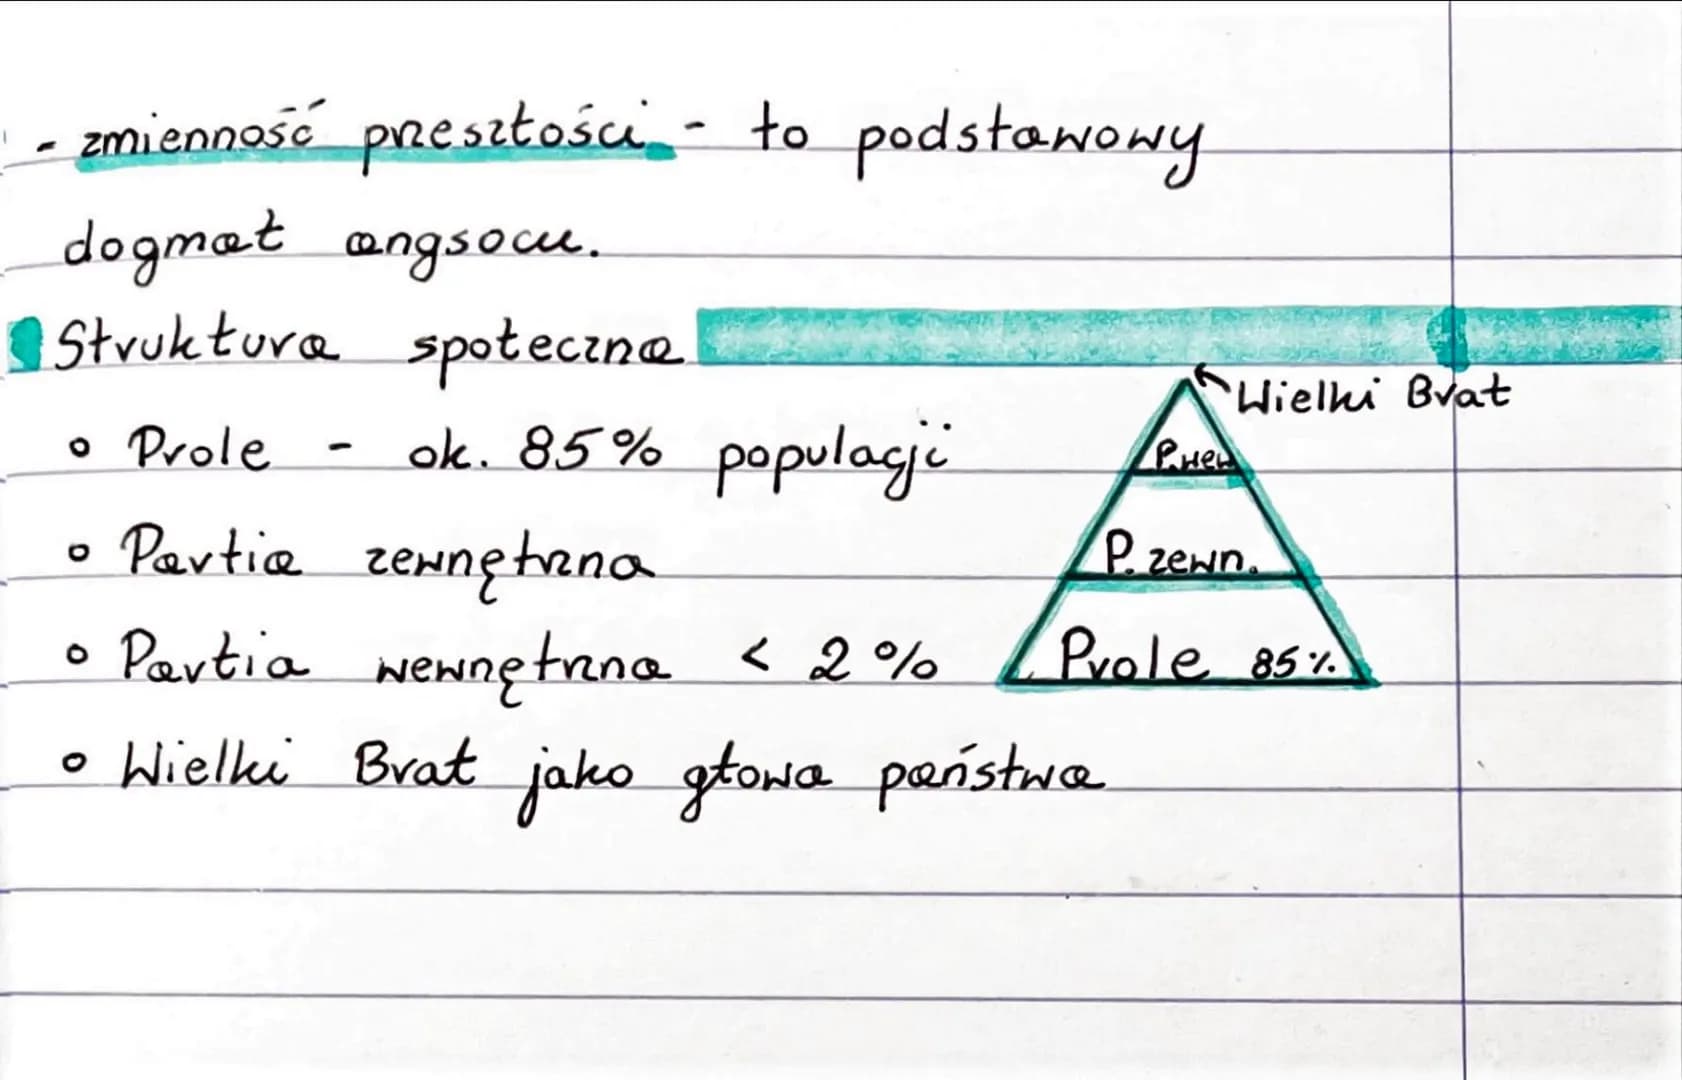 - zmienność przeszłości - to podstawowy
dogmat angsocu.
Struktura społeczna
Wielki Brat
° Prole - ok. 85% populacji
P.wew
° Partia zewnętrzna
P. zewn.
° Partia wewnętrzna < 2%
Prole 85%
° Wielki Brat jako głowa państwa